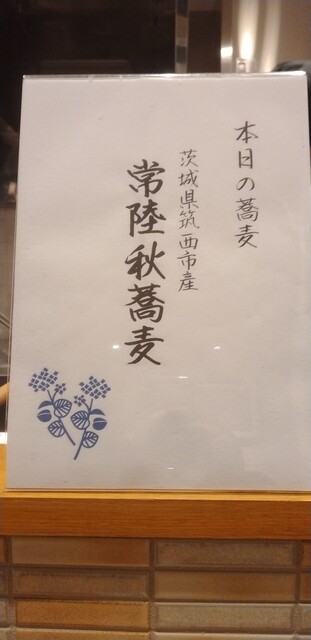 本日の蕎麦
茨城県筑西市産
常陸秋蕎麦